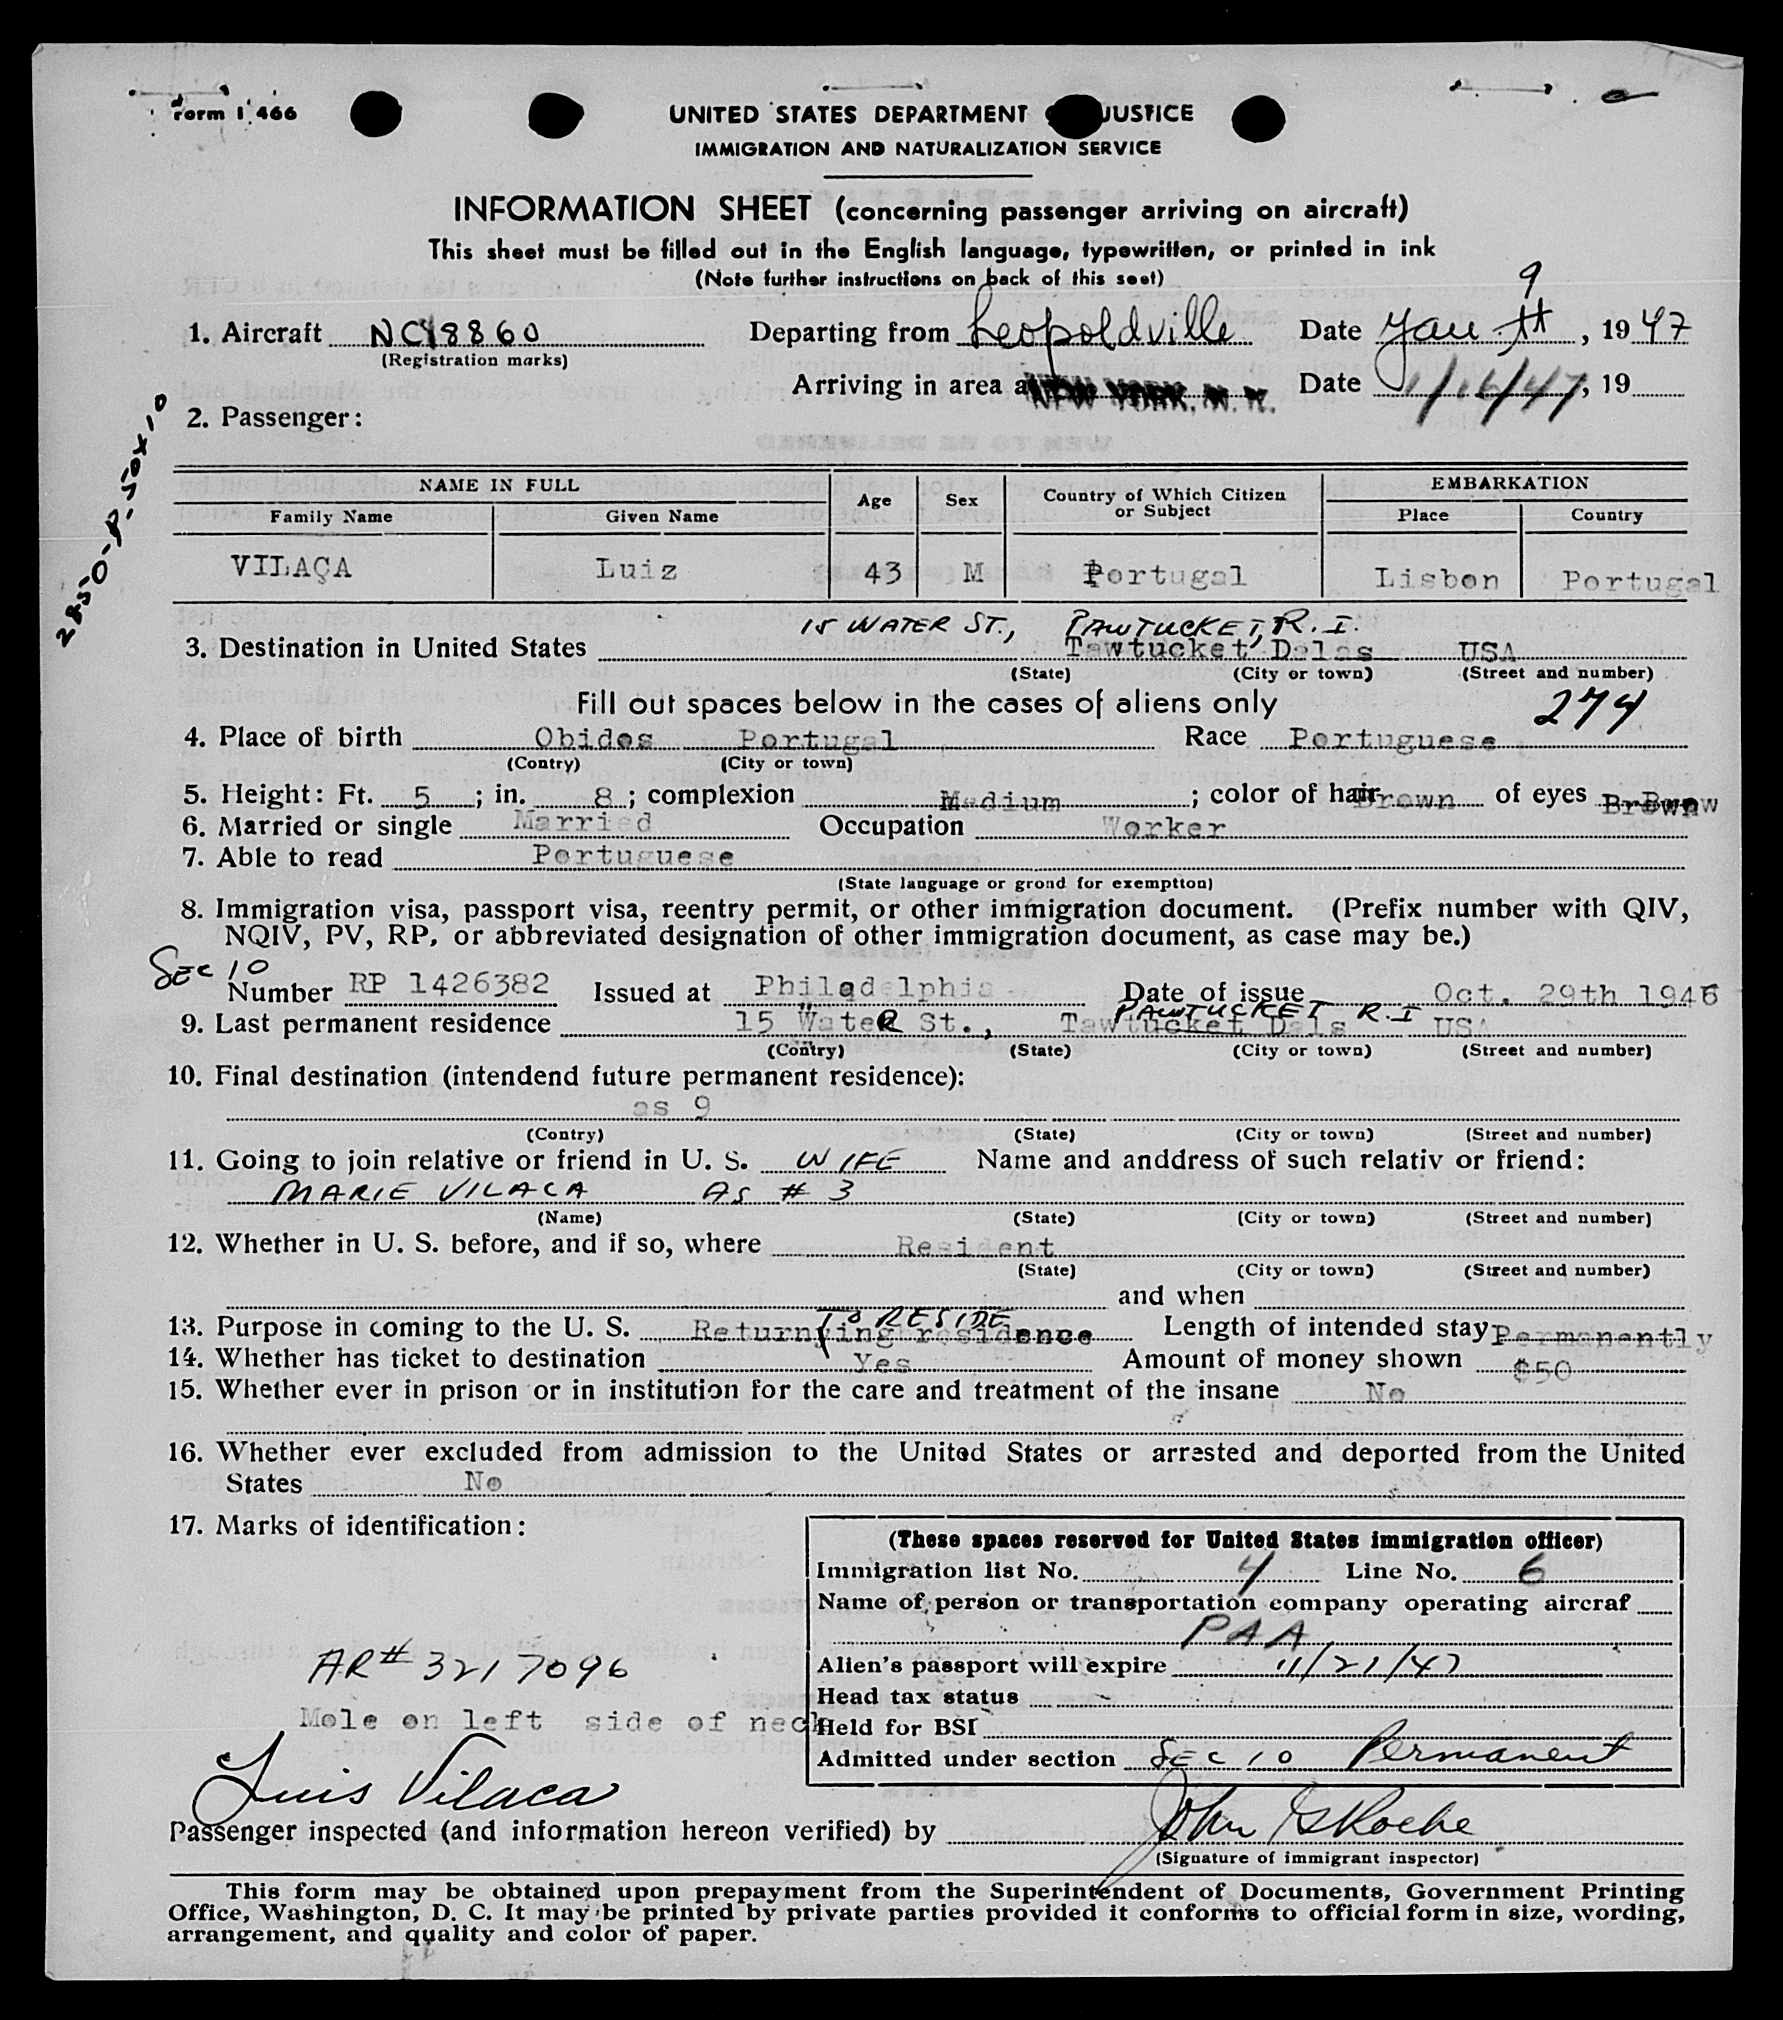 Form I 466
UNITED STATES DEPARTMENT JUSTICE
IMMIGRATION AND NATURALIZATION SERVICE
INFORMATION SHEET (concerning passenger arriving on aircraft)
This sheet must be filled out in the English language, typewritten, or printed in ink
(Note further instructions on back of this seet)
9
1. Aircraft NC18860 Departing from Leopoldville Date Jan , 1947
(Registration marks)
Arriving in area a NEW YORK, N. Y. Date 1/16/47, 19
2. Passenger:
2850-P-50X10
NAME IN FULL Age Sex Country of Which Citizen or Subject EMBARKATION
Family Name Given Name Place Country
VILAÇA Luiz 43 M Portugal Lisbon Portugal
15 WATER ST., PAWTUCKET, R. I.
3. Destination in United States Tawtucket Dalas USA
(State) (City or town) (Street and number)
Fill out spaces below in the cases of aliens only 274
4. Place of birth Obidos Portugal Race Portuguese
(Contry) (City or town)
5. Height: Ft. 5 ; in. 8 ; complexion Medium ; color of hair Brown of eyes Brown
6. Married or single Married Occupation Worker
7. Able to read Portuguese
(State language or grond for exemption)
8. Immigration visa, passport visa, reentry permit, or other immigration document. (Prefix number with QIV,
NQIV, PV, RP, or abbreviated designation of other immigration document, as case may be.)
SEC 10
Number RP 1426382 Issued at Philadelphia Date of issue Oct. 29th 1946
PAWTUCKET R.I
9. Last permanent residence 15 Water St., Tawtucket Dals USA
(Contry) (State) (City or town) (Street and number)
10. Final destination (intendend future permanent residence):
as 9
(Contry) (State) (City or town) (Street and number)
11. Going to join relative or friend in U. S. WIFE Name and anddress of such relativ or friend:
MARIE VILACA AS # 3
(Name) (State) (City or town) (Street and number)
12. Whether in U. S. before, and if so, where Resident
(State) (City or town) (Street and number)
and when
TO RESIDE
13. Purpose in coming to the U. S. Returnying residence Length of intended stay Permanently
14. Whether has ticket to destination Yes Amount of money shown $50
15. Whether ever in prison or in institution for the care and treatment of the insane No
16. Whether ever excluded from admission to the United States or arrested and deported from the United
States No
17. Marks of identification:
AR# 3217096
Mole on left side of neck
Luis Vilaca
(These spaces reserved for United States immigration officer)
Immigration list No. 4 Line No. 6
Name of person or transportation company operating aircraf
PAA
Alien's passport will expire 11/21/47
Head tax status -
Held for BSI
Admitted under section SEC 10 Permanent
Passenger inspected (and information hereon verified) by John
(Signature of immigrant inspector)
This form may be obtained upon prepayment from the Superintendent of Documents, Government Printing
Office, Washington, D. C. It may be printed by private parties provided it conforms to official form in size, wording,
arrangement, and quality and color of paper.